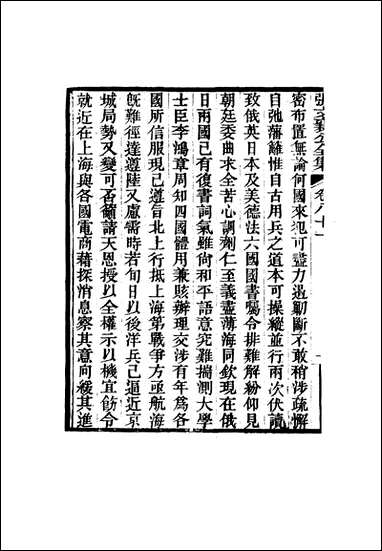 張文襄公全集 卷八十一
密布置無論何國來犯可盡力遏勦斷不敢稍涉疏懈
自弛藩籬惟自古用兵之道本可操縱並行兩次伏讀
致俄英日本及美德法六國國書屬令排難解紛仰見
朝廷委曲求全苦心調劑仁至義盡薄海同欽現在俄
日兩國已有復書詞氣雖尙和平語意究難揣測大學
士臣李鴻章周知四國體用兼賅辦理交涉有年爲各
國所信服現已遵旨北上行抵上海第戰爭方亟航海
旣難徑達遵陸又慮需時若旬日以後洋兵已逼近京
城局勢又變可否籲請天恩授以全權示以機宜飭令
就近在上海與各國電商藉探消息察其意向緩其進